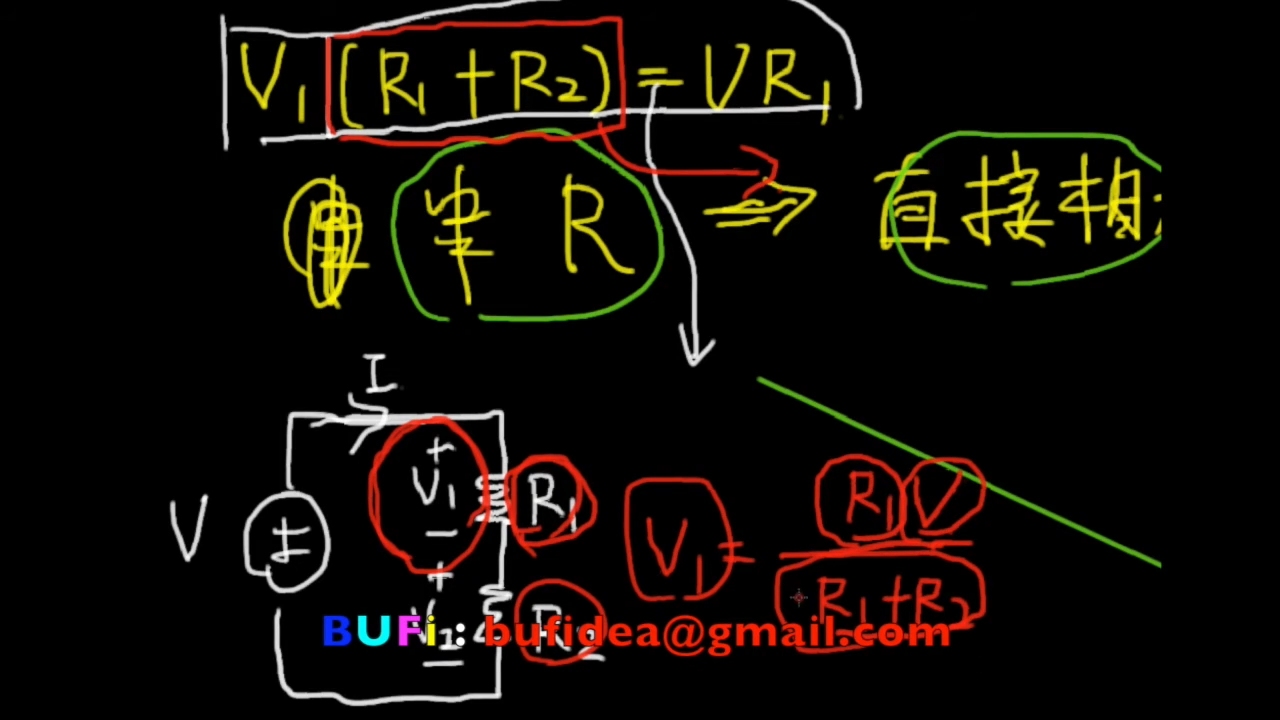 V₁(R₁+R₂)=VR₁
串 R ⇒ 直接相
I
+
V V₁ R₁ V₁ = R₁V / R₁+R₂
−
+
R₂
−
BUFi : bufidea@gmail.com